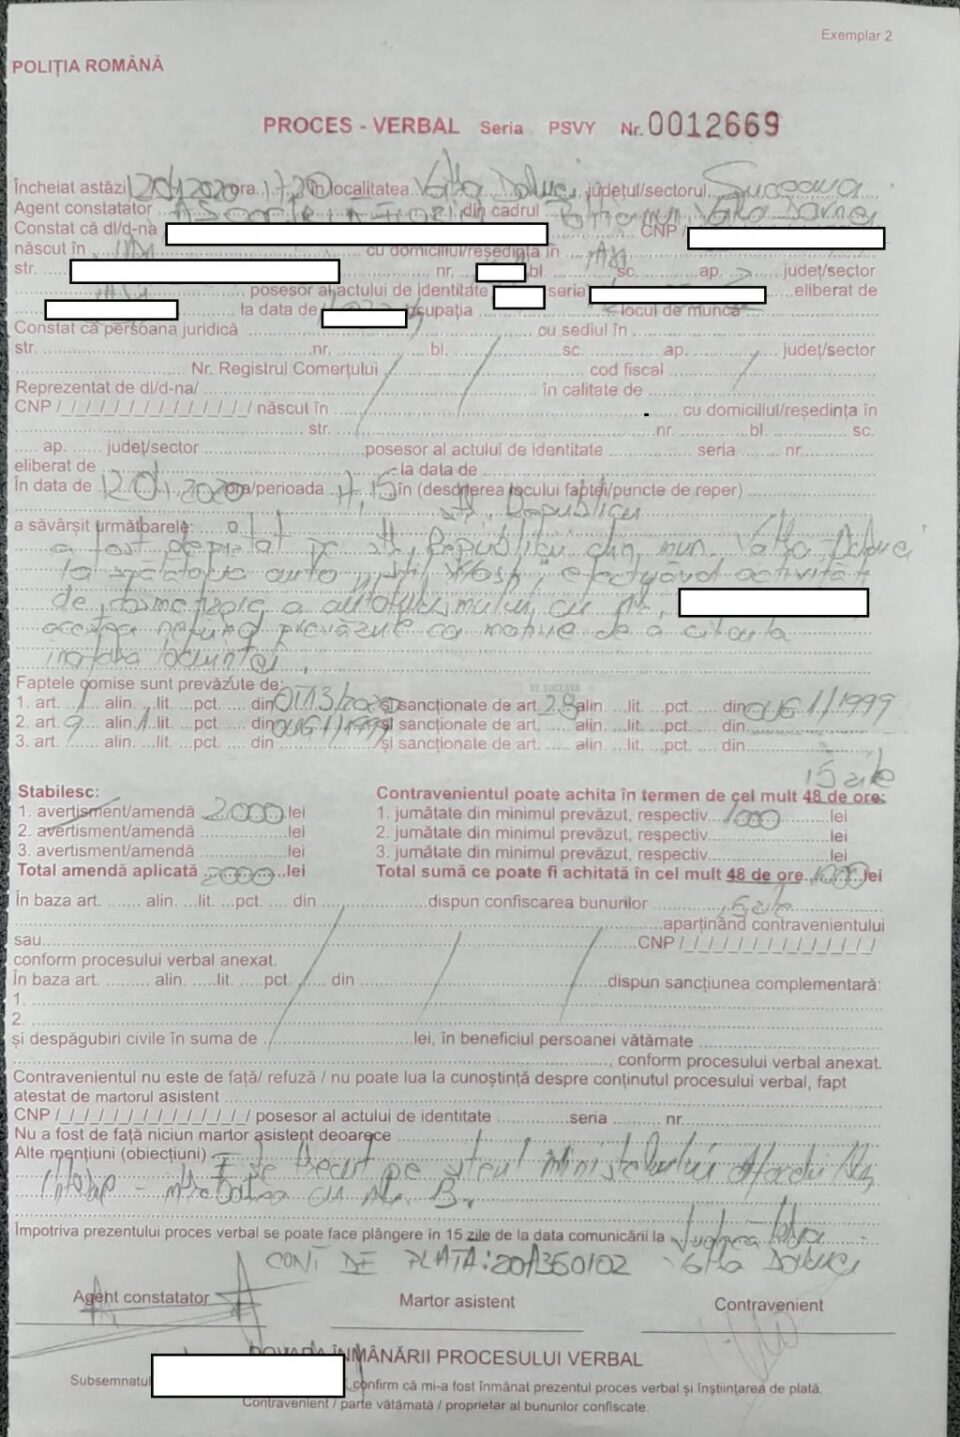 Exemplar 2
POLIȚIA ROMÂNĂ
PROCES - VERBAL Seria PSVY Nr. 0012669
Încheiat astăzi 12.04.2020 ora 17.20 în localitatea Vatra Dornei, județul/sectorul Suceava
Agent constatator din cadrul Vatra Dornei
Constat că dl/d-na CNP /
născut în cu domiciliul/reședința în
str. nr. bl. sc. ap. județ/sector
posesor al actului de identitate seria eliberat de
la data de ocupația locul de muncă
Constat că persoana juridică cu sediul în
str. nr. bl. sc. ap. județ/sector
Nr. Registrul Comerțului cod fiscal
Reprezentat de dl/d-na/ în calitate de
CNP /_/_/_/_/_/_/_/_/_/_/_/_/_/ născut în cu domiciliul/reședința în
str. nr. bl. sc.
ap. județ/sector posesor al actului de identitate seria nr.
eliberat de la data de
În data de 12.04.2020 ora/perioada 17,15 în (descrierea locului faptei/puncte de reper)
str. Republicii
a săvârșit următoarele:
a fost depistat pe str. Republicii din mun. Vatra Dornei
la spălătoria auto Wash, efectuând activități
de cosmetizare a autoturismului cu nr.
acestea nefiind prevăzute ca motive de a circula
în afara locuinței.
DE SUCEAVA
Faptele comise sunt prevăzute de:
1. art. 1 alin. lit. pct. din OM 3/2020 și sancționate de art. 28 alin. lit. pct. din OUG 1/1999
2. art. 9 alin. 1 lit. pct. din OUG 1/1999 și sancționate de art. alin. lit. pct. din
3. art. alin. lit. pct. din și sancționate de art. alin. lit. pct. din
15 zile
Stabilesc: Contravenientul poate achita în termen de cel mult 48 de ore:
1. avertisment/amendă 2000 lei 1. jumătate din minimul prevăzut, respectiv 1000 lei
2. avertisment/amendă lei 2. jumătate din minimul prevăzut, respectiv lei
3. avertisment/amendă lei 3. jumătate din minimul prevăzut, respectiv lei
Total amendă aplicată 2000 lei Total sumă ce poate fi achitată în cel mult 48 de ore 1000 lei
15 zile
În baza art. alin. lit. pct. din dispun confiscarea bunurilor
aparținând contravenientului
sau CNP /_/_/_/_/_/_/_/_/_/_/_/_/_/
conform procesului verbal anexat.
În baza art. alin. lit. pct. din dispun sancțiunea complementară:
1.
2.
și despăgubiri civile în suma de lei, în beneficiul persoanei vătămate
conform procesului verbal anexat.
Contravenientul nu este de față/ refuză / nu poate lua la cunoștință despre conținutul procesului verbal, fapt
atestat de martorul asistent
CNP /_/_/_/_/_/_/_/_/_/_/_/_/_/ posesor al actului de identitate seria nr.
Nu a fost de față niciun martor asistent deoarece
Alte mențiuni (obiecțiuni) E trecut pe siteul Ministerului Afacerilor
Interne -
Împotriva prezentului proces verbal se poate face plângere în 15 zile de la data comunicării la Judecătoria
CONT DE PLATA: 20A350102 Vatra Dornei
Agent constatator Martor asistent Contravenient
DOVADA ÎNMÂNĂRII PROCESULUI VERBAL
Subsemnatul confirm că mi-a fost înmânat prezentul proces verbal și înștiințarea de plată.
Contravenient / parte vătămată / proprietar al bunurilor confiscate.